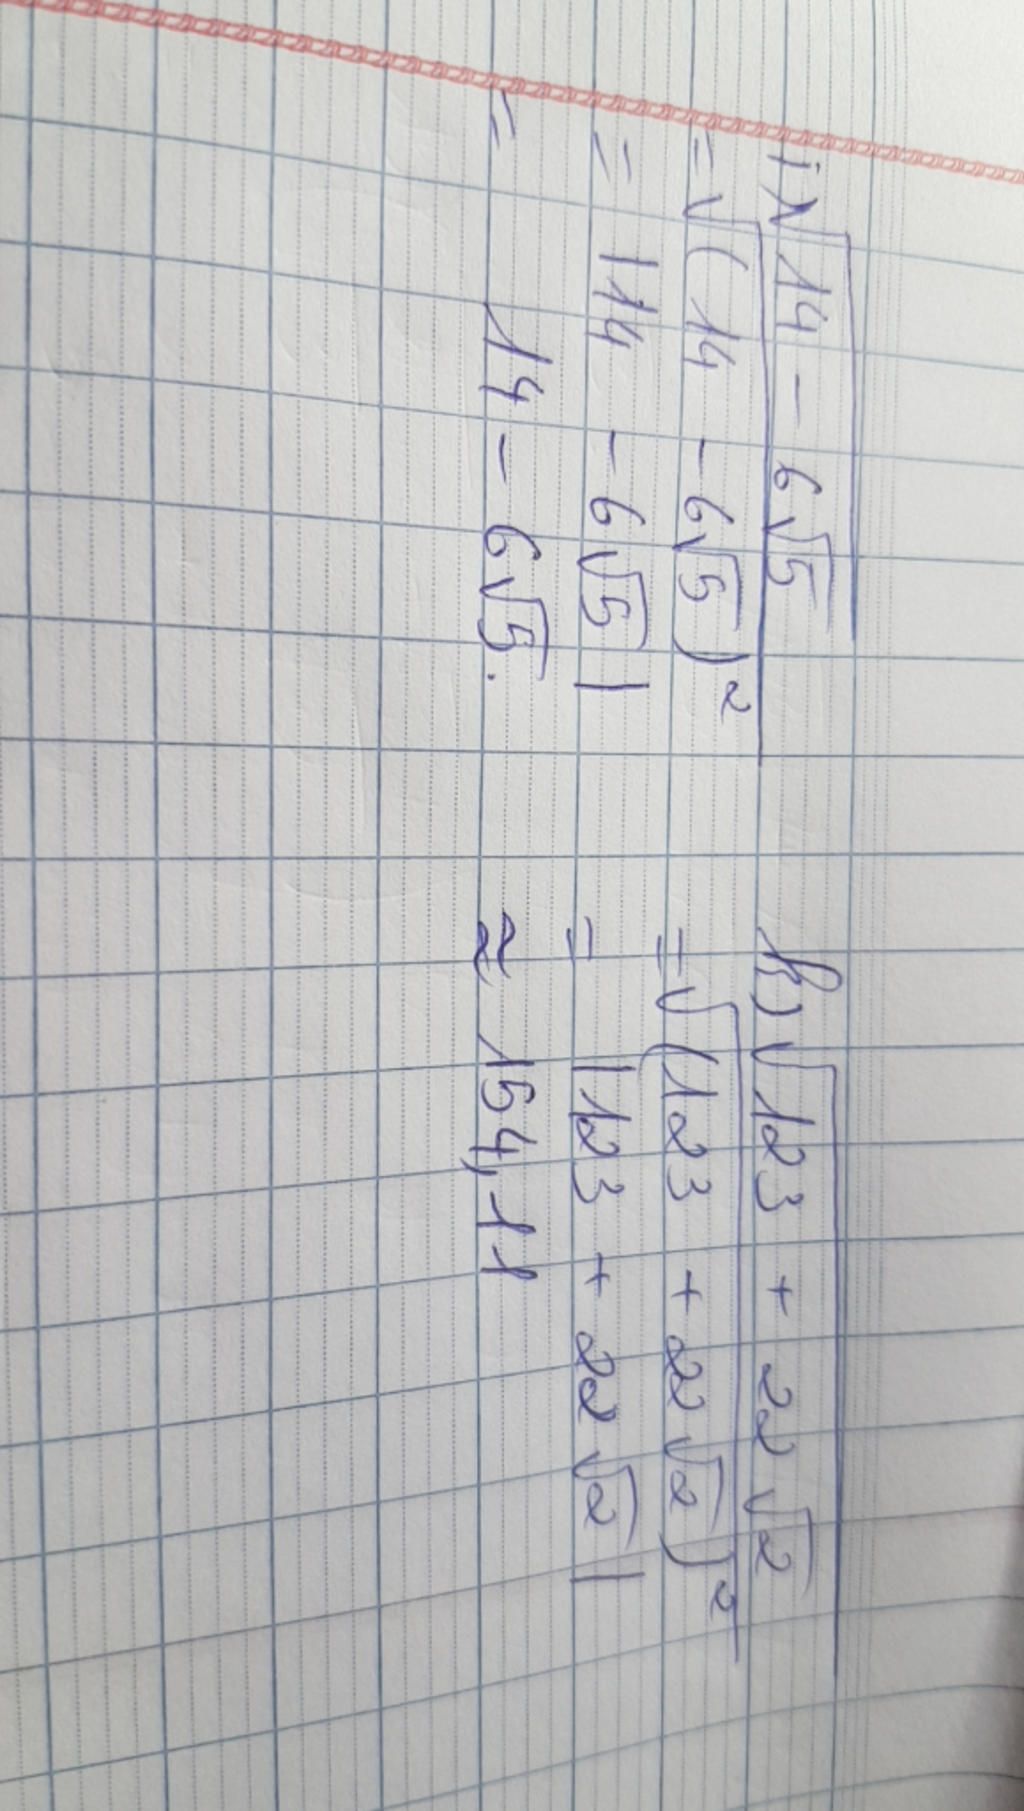 i) √(14 - 6√5)
= √((14 - 6√5)²)
= |14 - 6√5|
= 14 - 6√5.
h) √(123 + 22√2)
= √((123 + 22√2)²)
= |123 + 22√2|
≈ 154,11